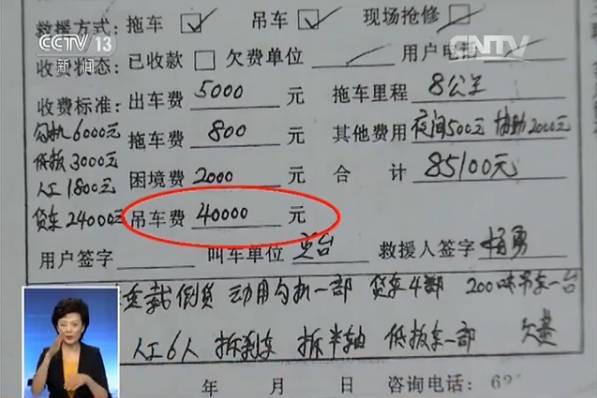 CCTV 13
新闻
CNTV
救援方式: 拖车 吊车 现场抢修
收费状态: 已收款 欠费单位 用户电
收费标准: 出车费 5000 元 拖车里程 8公里
勾机6000元 拖车费 800 元 其他费用 夜间500元 协助2000元
低板3000元
人工1800元 困境费 2000 元 合计 85100元
货车24000元 吊车费 40000 元
用户签字 叫车单位 交台 救援人签字 杨勇
重载倒货 动用勾机一部 货车4部 200吨吊车一台
人工6人 拆刹车 拆半轴 低板车一部 欠费
年 月 日 咨询电话: 62